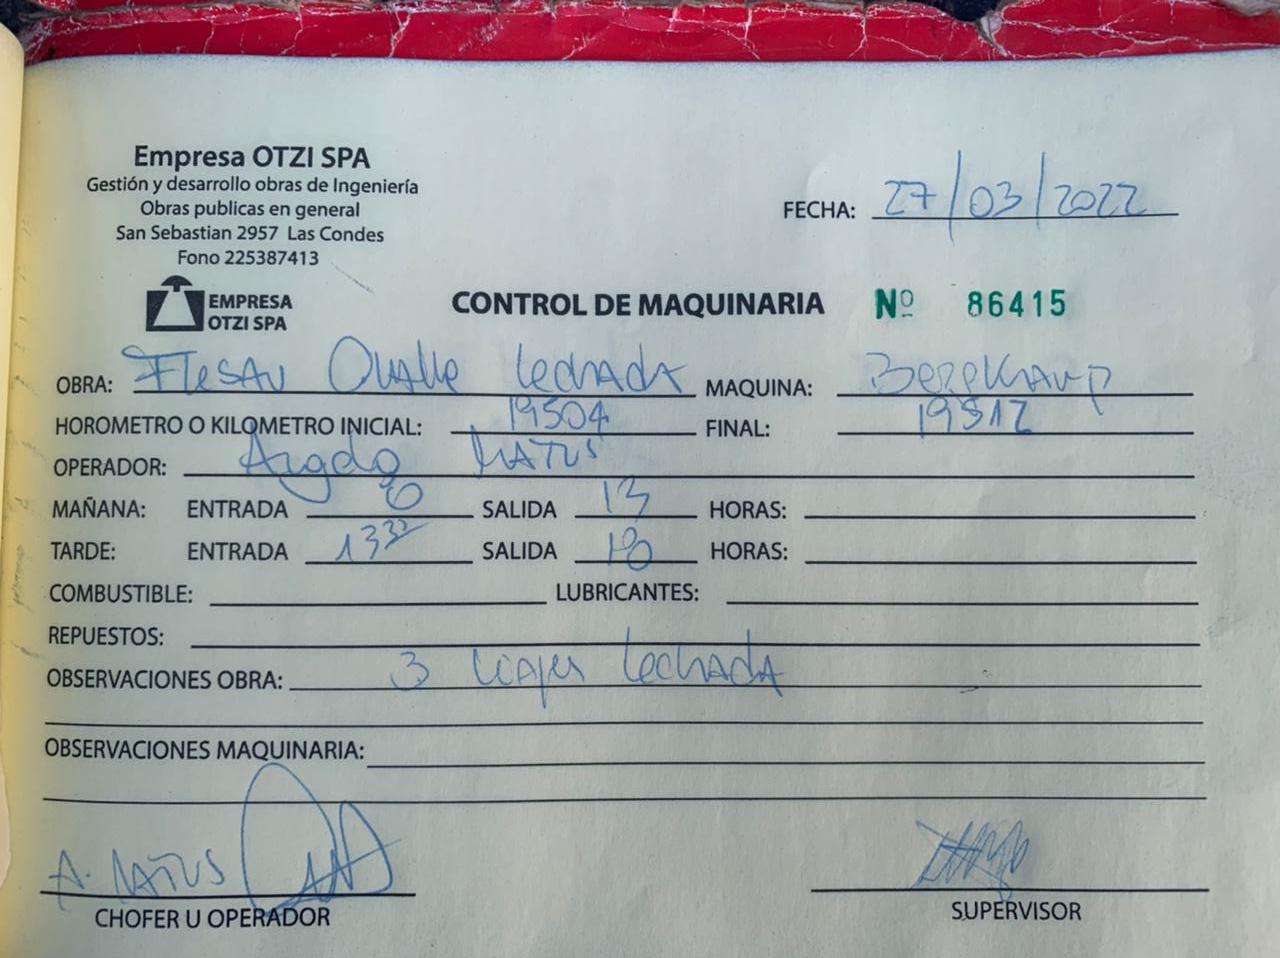 Empresa OTZI SPA
Gestión y desarrollo obras de Ingeniería
Obras publicas en general
San Sebastian 2957 Las Condes
Fono 225387413
FECHA: 27/03/2022
EMPRESA
OTZI SPA
CONTROL DE MAQUINARIA Nº 86415
OBRA: Flesan Ovalle Lechada MAQUINA: Bergkamp
HOROMETRO O KILOMETRO INICIAL: 19504 FINAL: 19512
OPERADOR: MATUS
MAÑANA: ENTRADA SALIDA 13 HORAS:
TARDE: ENTRADA 13 SALIDA HORAS:
COMBUSTIBLE: LUBRICANTES:
REPUESTOS:
OBSERVACIONES OBRA: 3 viajes lechada
OBSERVACIONES MAQUINARIA:
A. MATUS
CHOFER U OPERADOR
SUPERVISOR